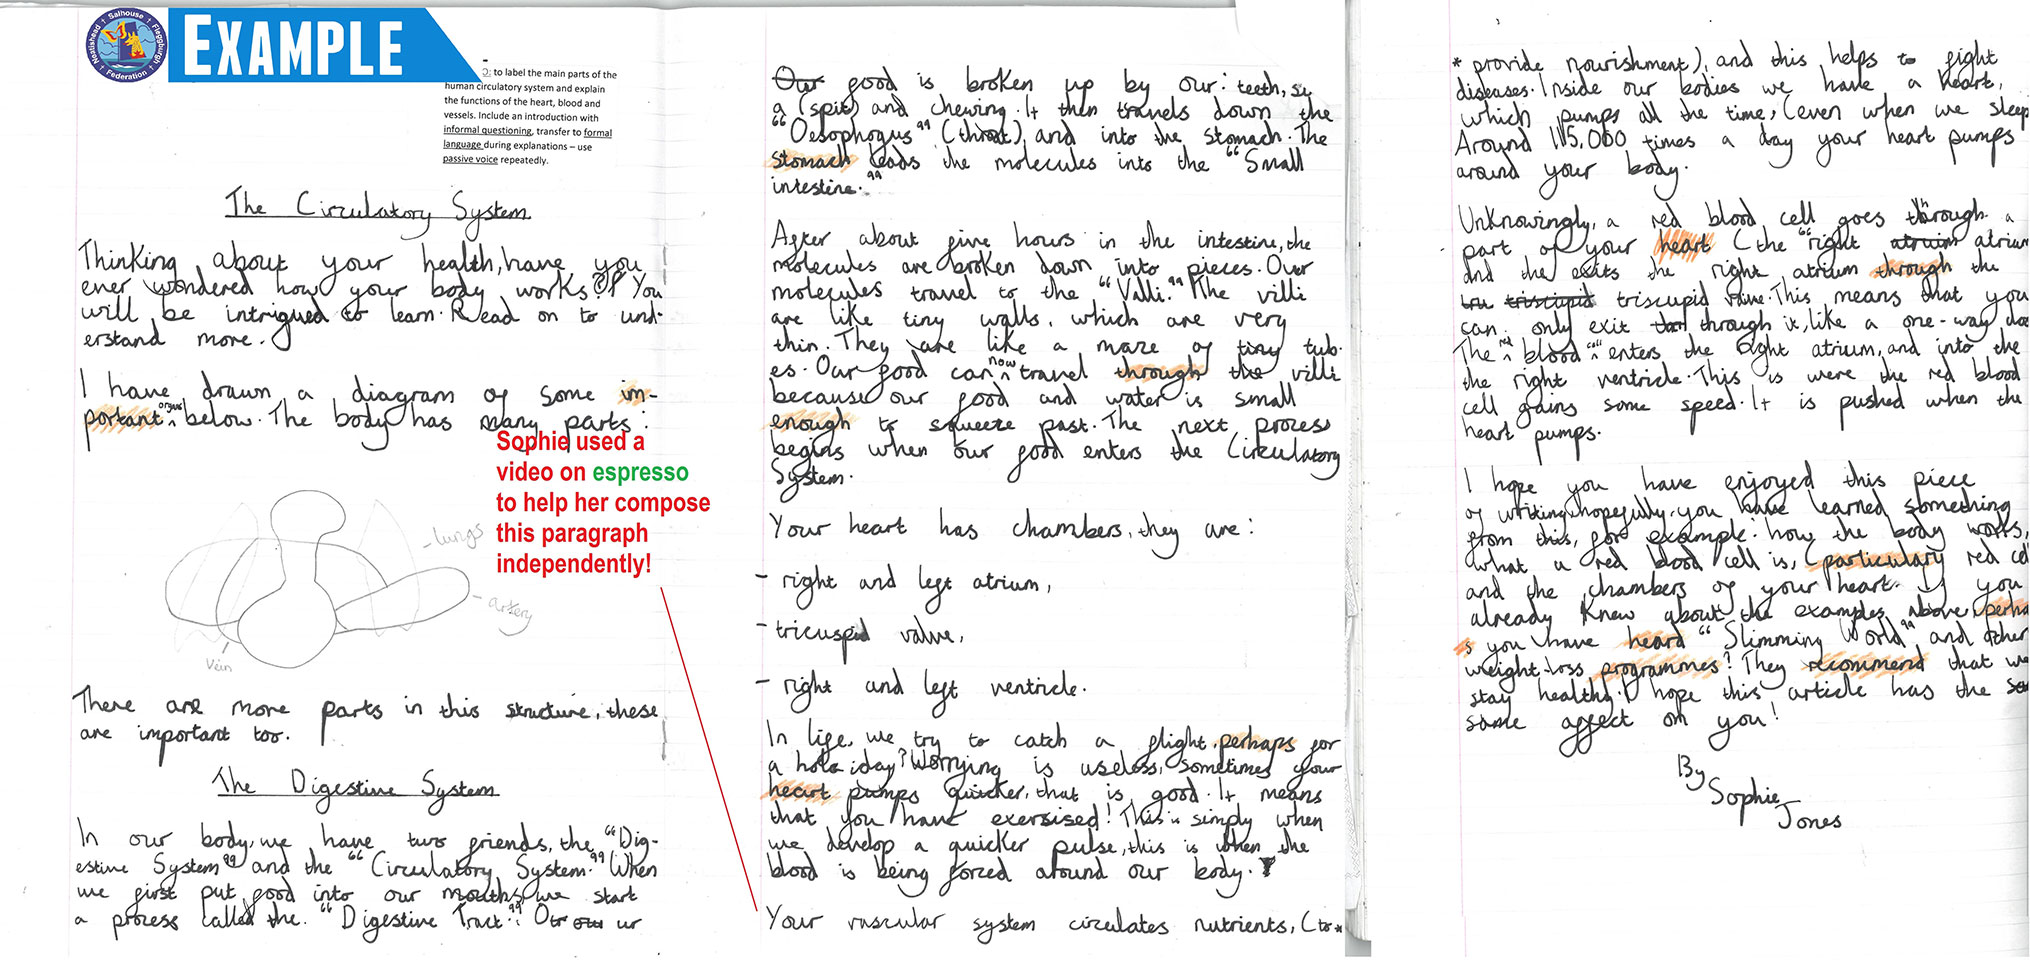 Neatishead † Salhouse † Fleggburgh † Federation
EXAMPLE
O: to label the main parts of the
human circulatory system and explain
the functions of the heart, blood and
vessels. Include an introduction with
informal questioning, transfer to formal
language during explanations – use
passive voice repeatedly.
The Circulatory System
Thinking about your health, have you
ever wondered how your body works? You
will be intrigued to learn. Read on to und-
erstand more.
I have drawn a diagram of some im-
portant organs below. The body has many parts:
lungs
artery
Vein
There are more parts in this structure, these
are important too.
The Digestive System
In our body, we have two friends, the "Dig-
estive System" and the "Circulatory System." When
we first put food into our mouths, we start
a process called the. "Digestive Tract". Our
Sophie used a
video on espresso
to help her compose
this paragraph
independently!
Our food is broken up by our: teeth,
a (spit) and chewing. It then travels down the
"Oesophogus" (throat), and into the stomach. The
stomach leads the molecules into the "Small
intestine."
After about five hours in the intestine, the
molecules are broken down into pieces. Our
molecules travel to the "Valli." The villi
are like tiny walls, which are very
thin. They are like a maze of tiny tub-
es. Our food can now travel through the villi
because our food and water is small
enough to squeeze past. The next process
begins when our food enters the Circulatory
System.
Your heart has chambers, they are:
- right and left atrium,
- tricuspid valve,
- right and left ventricle.
In life, we try to catch a flight, perhaps for
a holoiday? Worrying is useless, sometimes your
heart pumps quicker, that is good. It means
that you have exersised! This is simply when
we develop a quicker pulse, this is when the
blood is being forced around our body.
Your vascular system circulates nutrients, (to*
* provide nourishment), and this helps to fight
diseases. Inside our bodies we have a heart,
which pumps all the time, (even when we sleep
Around 115,000 times a day your heart pumps
around your body.
Unknowingly, a red blood cell goes through a
part of your heart (the "right atrium atrium
and the exits the right atrium through the
tru triscupid triscupid valve. This means that you
can only exit through it, like a one-way doo
The red blood cell enters the right atrium, and into the
the right ventricle. This is were the red blood
cell gains some speed. It is pushed when the
heart pumps.
I hope you have enjoyed this piece
of writing, hopefully, you have learned something
from this, for example: how the body works,
what a red blood cell is, (particulary red ce
and the chambers of your heart. If you
already knew about the examples above, perha
s you have heard "Slimming World" and other
weight-loss programmes? They recommend that we
stay healthy. I hope this article has the
same affect on you!
By
Sophie
Jones